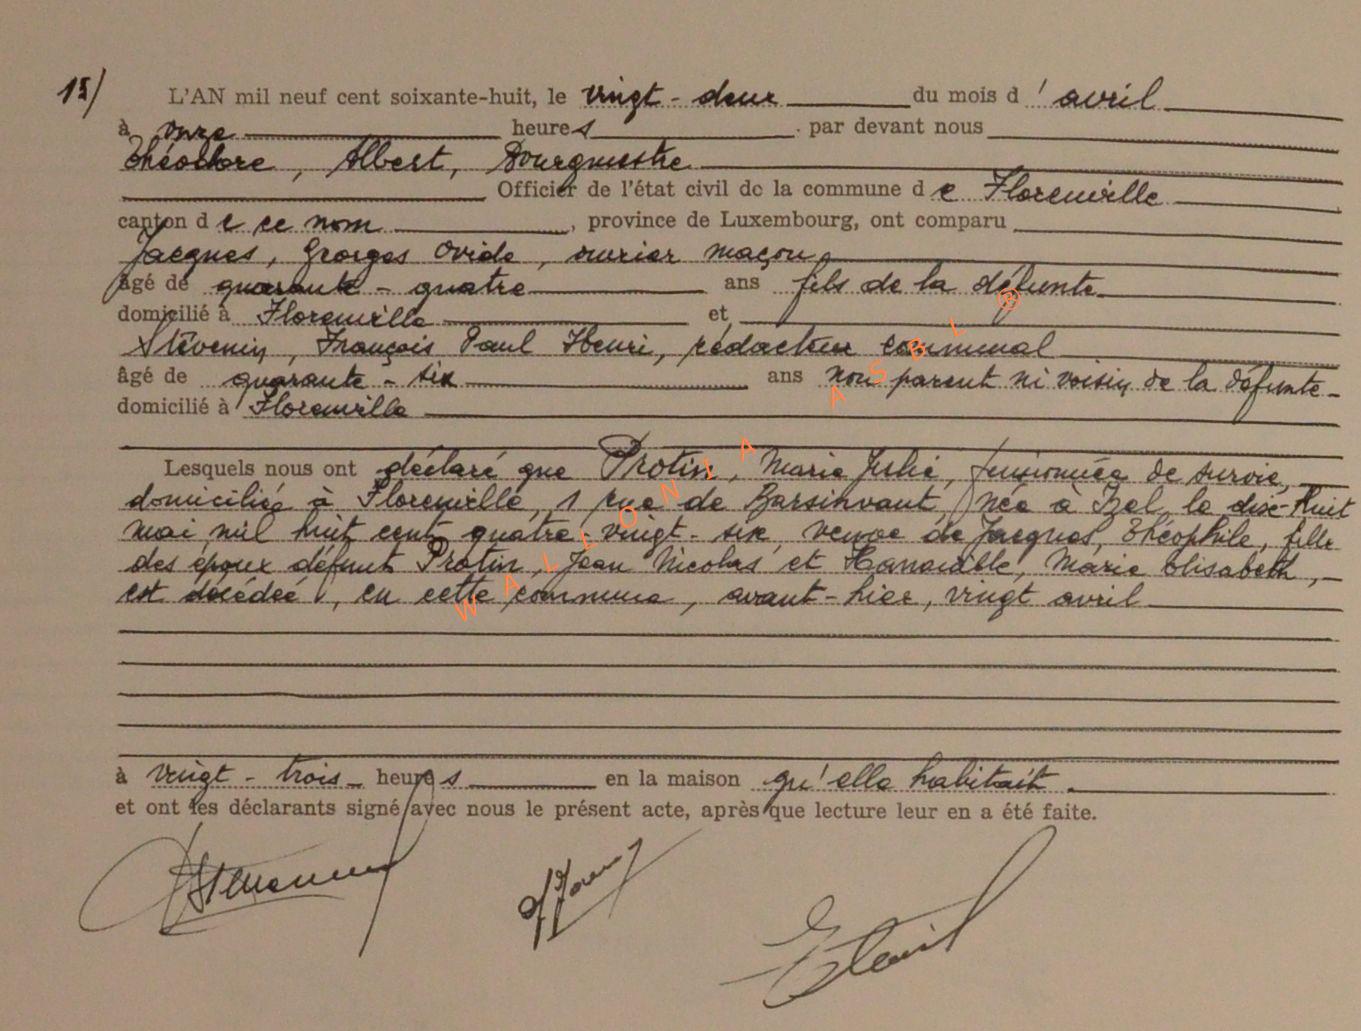 15/ L'AN mil neuf cent soixante-huit, le vingt-deux du mois d'avril
à onze heures par devant nous
Théodore, Albert, Bourgmestre
Officier de l'état civil de la commune de Florenville
canton de ce nom, province de Luxembourg, ont comparu
Jacques, Georges Ovide, ouvrier maçon,
âgé de quarante-quatre ans fils de la défunte
domicilié à Florenville et
Stévenin, François Paul Henri, rédacteur communal
âgé de quarante-six ans non parent ni voisin de la défunte
domicilié à Florenville
Lesquels nous ont déclaré que Protin, Marie Julie, pensionnée de survie,
domiciliée à Florenville, 1 rue de Barsinvaut, née à Izel, le dix-huit
mai mil huit cent quatre-vingt-six veuve de Jacques, Théophile, fille
des époux défunt Protin, Jean Nicolas et , Marie Elisabeth,
est décédée, en cette commune, avant-hier, vingt avril
à vingt-trois heures en la maison qu'elle habitait.
et ont les déclarants signé avec nous le présent acte, après que lecture leur en a été faite.
WALLONIA ASBL ®